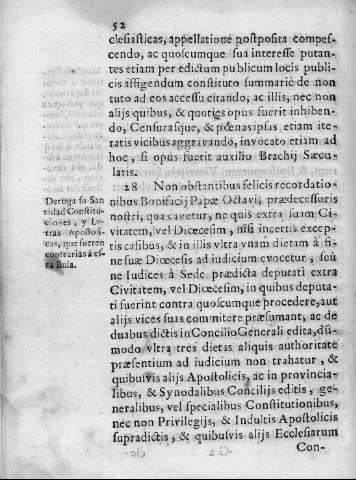 52
clesiasticas, appellatione postposita compes-
cendo, ac quoscumque sua interesse putan-
tes etiam per edictum publicum locis publi-
cis affigendum constituto summariè de non
tuto ad eos accessu citando, ac illis, nec non
alijs quibus, & quoties opus fuerit inhiben-
do, Censurasque, & pœnas ipsas etiam ite-
ratis vicibus aggravando, invocato etiam ad
hoc, si opus fuerit auxilio Brachij Sæcu-
laris.
28 Non obstantibus felicis recordatio-
nis Bonifacij Papæ Octavi, prædecessoris
nostri, qua cavetur, ne quis extra suim Ci-
vitatem, vel Diœcesim, nisi incertis excep-
tis casibus, & in illis vltra vnam dietam à fi-
ne suæ Diœcesis ad iudicium evocetur, seu
ne Iudices à Sede prædicta deputati extra
Civitatem, vel Diœcesim, in quibus deputa-
ti fuerint contra quoscumque procedere, aut
alijs vices suas commitere præsumant, ac de
duabus dictis in Concilio Generali edita, dũ-
modo vltra tres dietas aliquis authoritate
præsentium ad iudicium non trahatur, &
quibusvis alijs Apostolicis, ac in provincia-
libus, & Synodalibus Concilijs editis, ge-
neralibus, vel specialibus Constitutionibus,
nec non Privilegijs, & Indultis Apostolicis
supradictis, & quibusvis alijs Ecclesiarum
Con-
Deroga su San
tidad Constitu-
ciones, y Le-
tras Apostoli-
cas, que fueren
contrarias à es-
ta Bula.